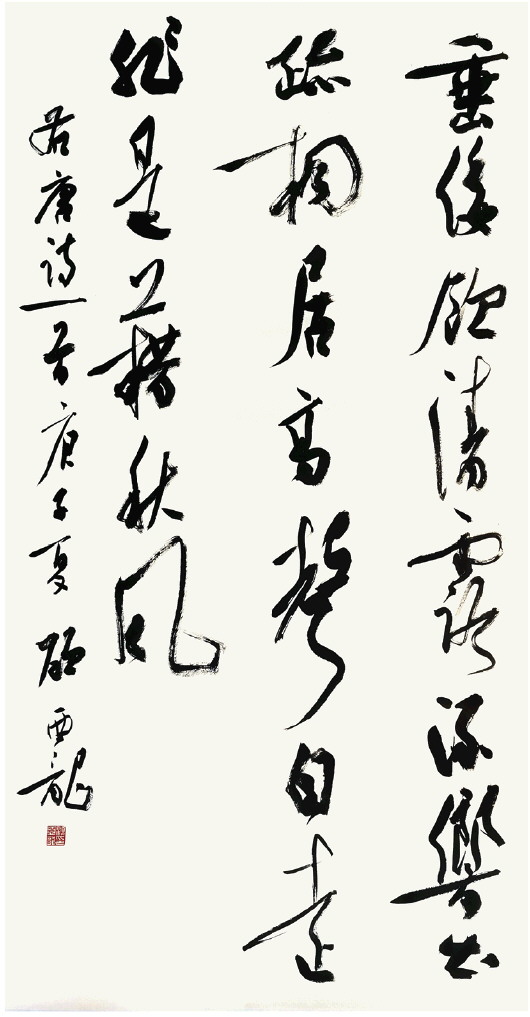 垂緌飲清露流響出
疏桐居高聲自遠
非是藉秋風
右唐詩一首庚子夏 西龍